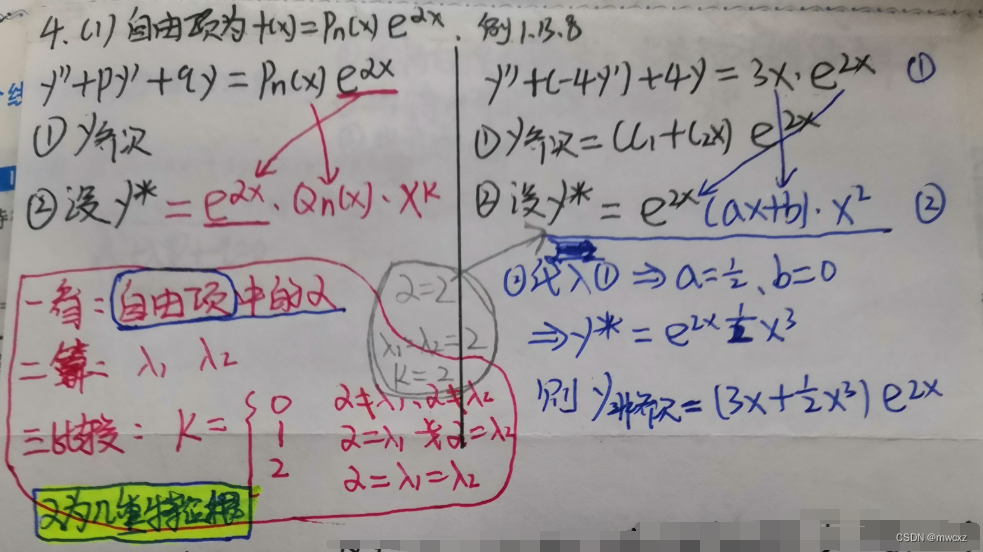 4. (1) 自由项为 f(x) = Pn(x) e^{2x}. 例1.13.8
y'' + py' + qy = Pn(x) e^{2x}
① y齐次
② 设 y* = e^{2x} · Qn(x) · x^k
一看：自由项中的2
二算：λ1 λ2
三比较：K = { 0 2≠λ1、2≠λ2
1 2=λ1 或 2=λ2
2 2=λ1=λ2
2为几重特征根
2=2
λ1=λ2=2
K=2
y'' + (-4y') + 4y = 3x · e^{2x} ①
① y齐次 = (C1 + C2x) e^{2x}
② 设 y* = e^{2x} (ax+b) · x^2 ②
②代入① ⇒ a=1/2、b=0
⇒ y* = e^{2x} 1/2 x^3
则 y非齐次 = (3x + 1/2 x^3) e^{2x}
CSDN @mwcxz